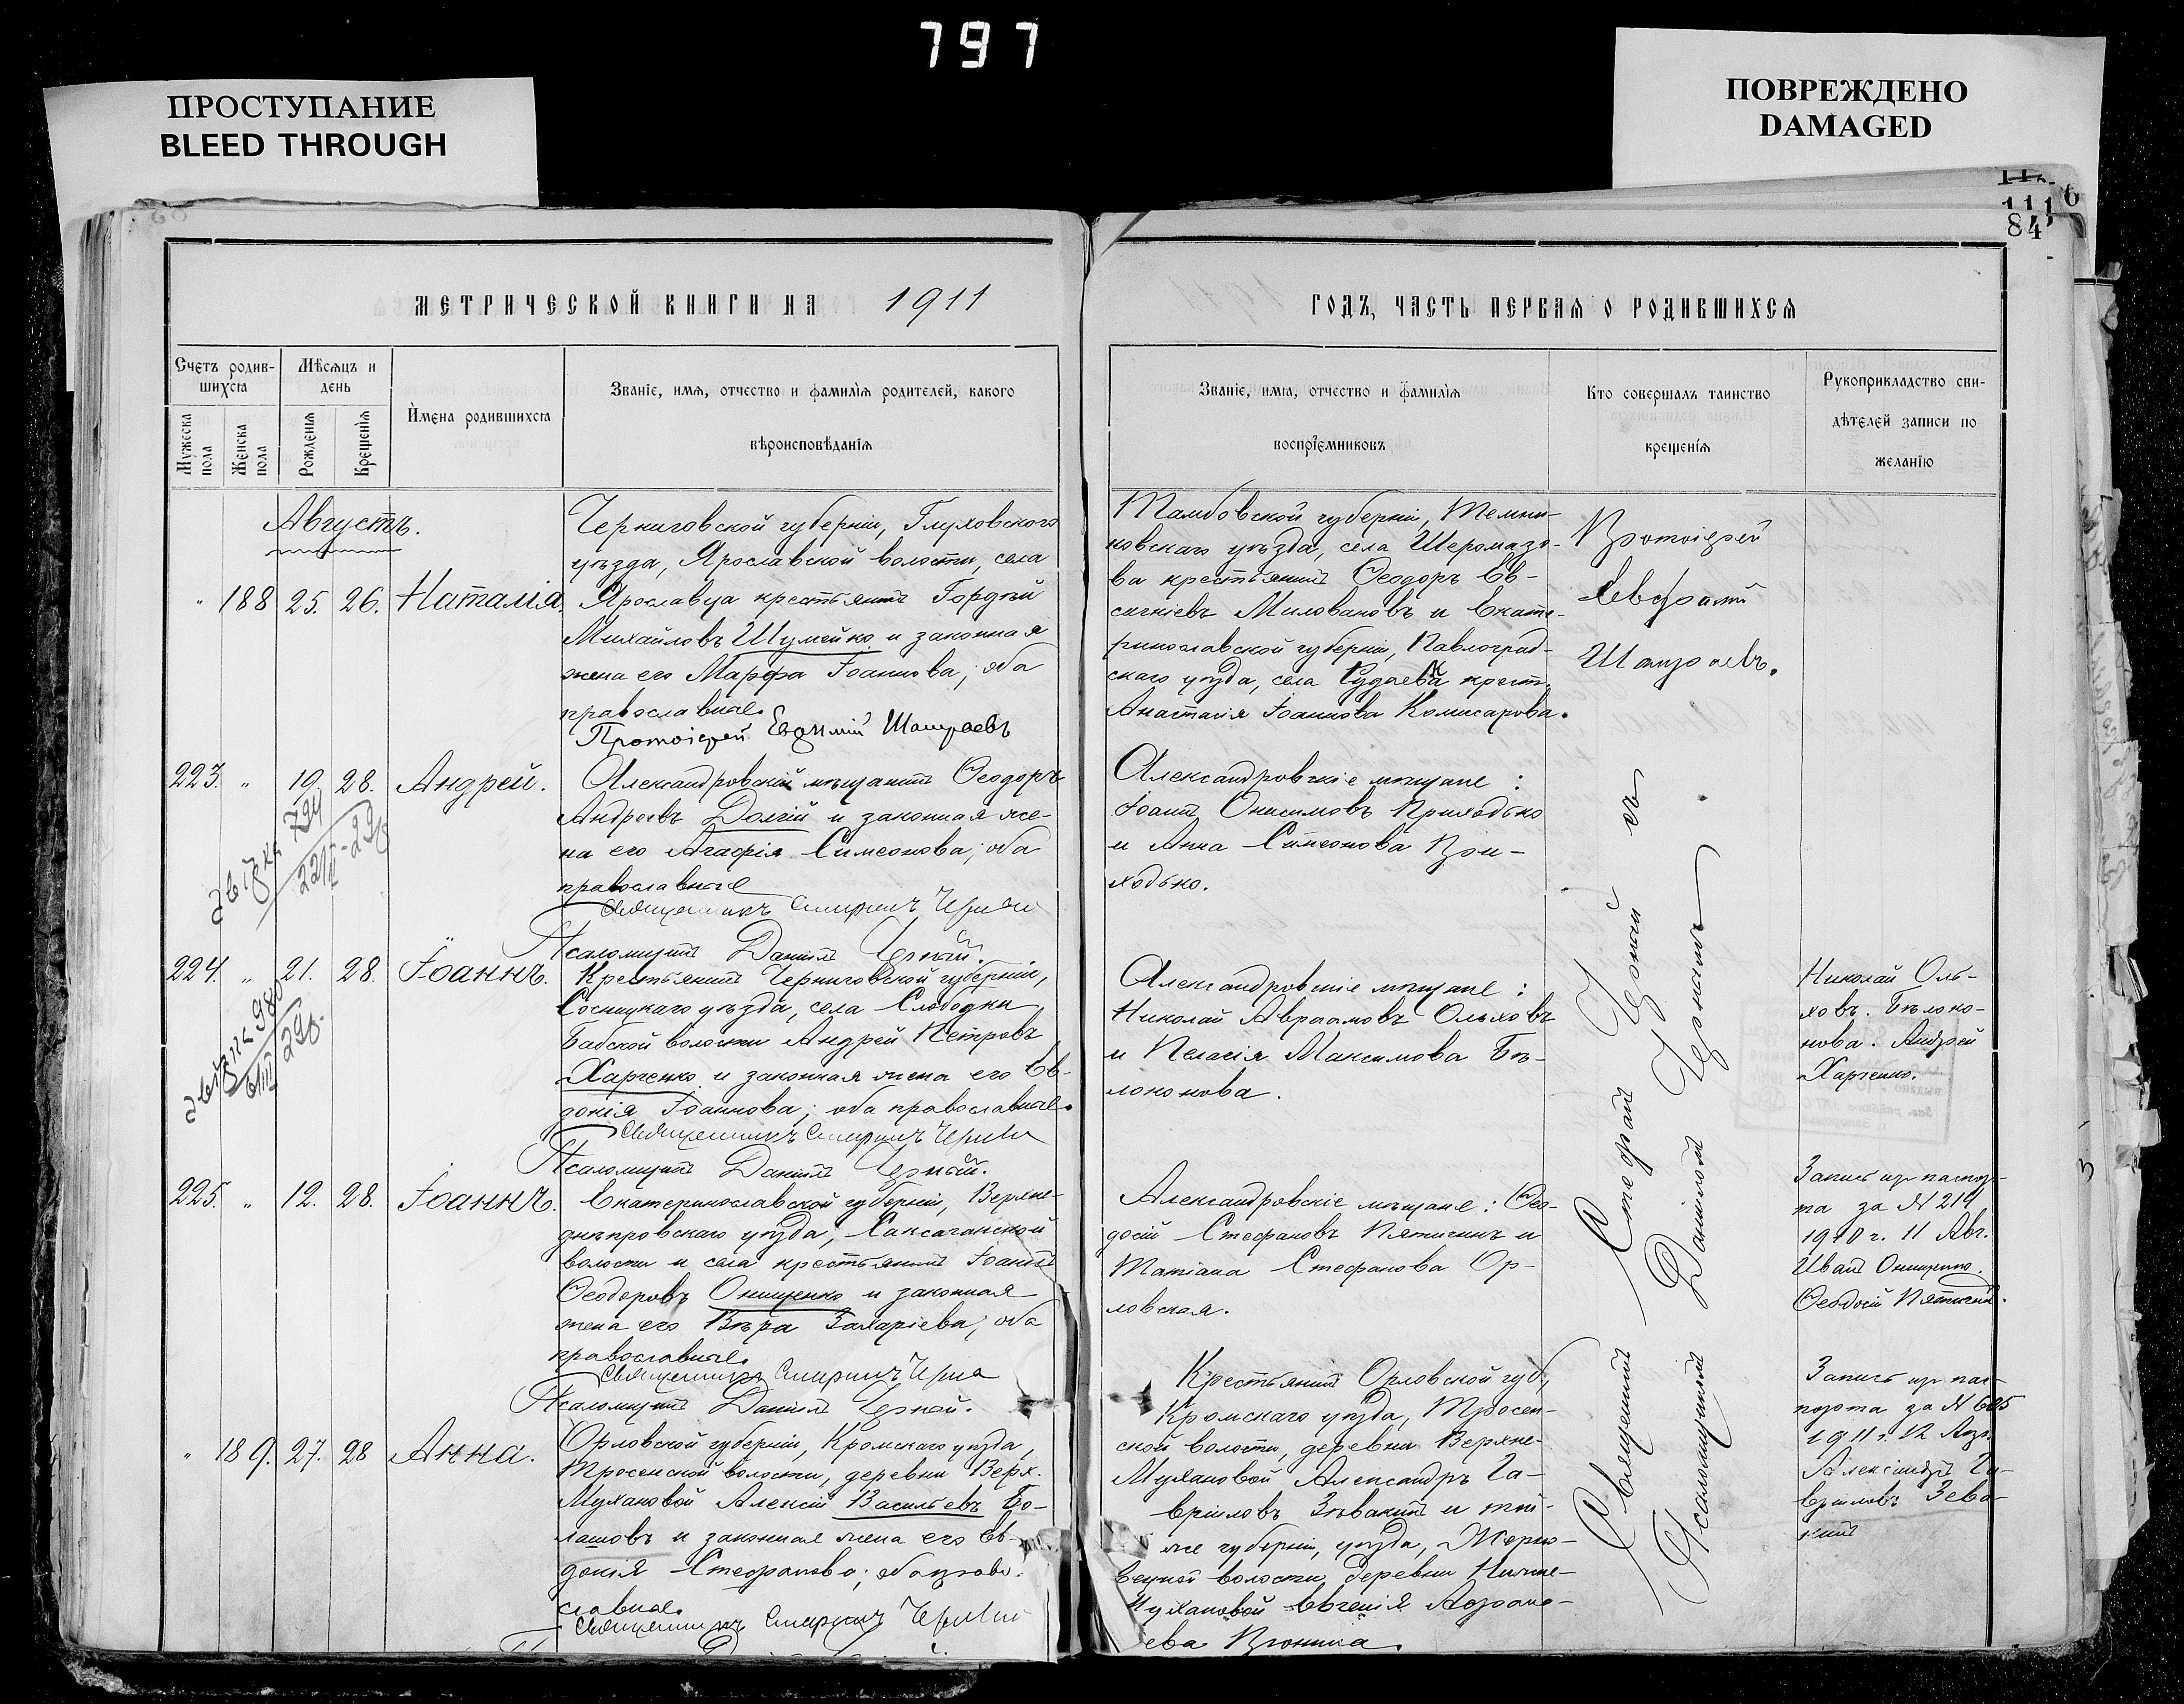 797
ПРОСТУПАНИЕ
BLEED THROUGH
ПОВРЕЖДЕНО
DAMAGED
111
6
84
МЕТРИЧЕСКОЙ КНИГИ НА 1911
ГОДЪ, ЧАСТЬ ПЕРВАЯ О РОДИВШИХСЯ
Счетъ родив-
шихся
Мѣсяцъ и
день
Мужеска
пола
Женска
пола
Рожденія
Крещенія
Имена родившихся
Званіе, имя, отчество и фамилія родителей, какого
вѣроисповѣданія
Званіе, имя, отчество и фамилія
воспріемниковъ
Кто совершалъ таинство
крещенія
Рукоприкладство сви-
дѣтелей записи по
желанію
Августъ.
" 188 25. 26. Наталія.
Черниговской губерніи, Глуховского
уѣзда, Ярославской волости, села
Ярославца крестьянинъ Гордѣй
Михайловъ Шумейко и законная
жена его Марфа Іоаннова, оба
православные.
Протоіерей Евфимій
Тамбовской губерніи, Темни-
ковскаго уѣзда, села
крестьянинъ Ѳеодоръ Ев-
Миловановъ и Екате-
ринославской губерніи, Павлоград-
скаго уѣзда, села крест.
Анастасія Іоаннова Комисарова.
Протоіерей
223. " 19. 28. Андрей.
794
Александровскій мѣщанинъ Ѳеодоръ
Андреевъ Долгій и законная же-
на его Агафія Симеонова, оба
православные
Священникъ
Псаломщикъ Даніилъ Черный.
Александровскіе мѣщане:
Іоаннъ Онисимовъ Приходько
и Анна Симеонова При-
ходько.
224. " 21. 28. Іоаннъ.
980
Крестьянинъ Черниговской губерніи,
Сосницкаго уѣзда, села Слободки
Бабской волости Андрей Петровъ
Харченко и законная жена его Ев-
докія Іоаннова; оба православные.
Священникъ
Псаломщикъ Даніилъ Черный.
Александровскіе мѣщане:
Николай Авраамовъ Ольховъ
и Пелагія Максимова Бѣ-
локонова.
Николай Оль-
ховъ. Бѣлоко-
нова. Андрей
Харченко.
225. " 12. 28. Іоаннъ.
Екатеринославской губерніи, Верхне-
днѣпровскаго уѣзда, Саксаганской
волости и села крестьянинъ Іоаннъ
Ѳеодоровъ Онищенко и законная
жена его Вѣра Захаріева; оба
православные.
Священникъ
Псаломщикъ Даніилъ Черный.
Александровскіе мѣщане: Ѳео-
досій Стефановъ Пятигинъ и
Татіана Стефанова Ор-
ловская.
Запись изъ паспор-
та за № 214
1910 г. 11 Авг.
Иванъ Онищенко.
Ѳеодосій Пятигинъ.
" 189. 27. 28 Анна.
Орловской губерніи, Кромскаго уѣзда,
Тросенской волости, деревни Верх.
Мухановой Алексій Васильевъ Бо-
лашовъ и законная жена его Ев-
докія Стефанова; оба право-
славные.
Священникъ
Крестьянинъ Орловской губ.,
Кромскаго уѣзда, Тросен-
ской волости, деревни Верхне-
Мухановой Александръ Га-
вриловъ Зѣвакинъ и той-
же губерніи, уѣзда,
волости, деревни Нижне-
Мухановой Евгенія
Запись изъ пас-
порта за № 605
1911 г. 12
Александръ Га-
вриловъ Зева-
кинъ
Священникъ Стефанъ Черный съ
Псаломщикомъ Даніиломъ Чернымъ